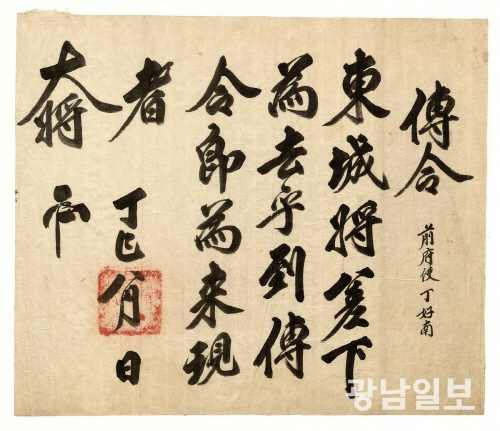 傳令
前府使丁好南
東城將差下
為去乎到傳
令卽為来現
者 丁巳 八月 日
大將
광남일보